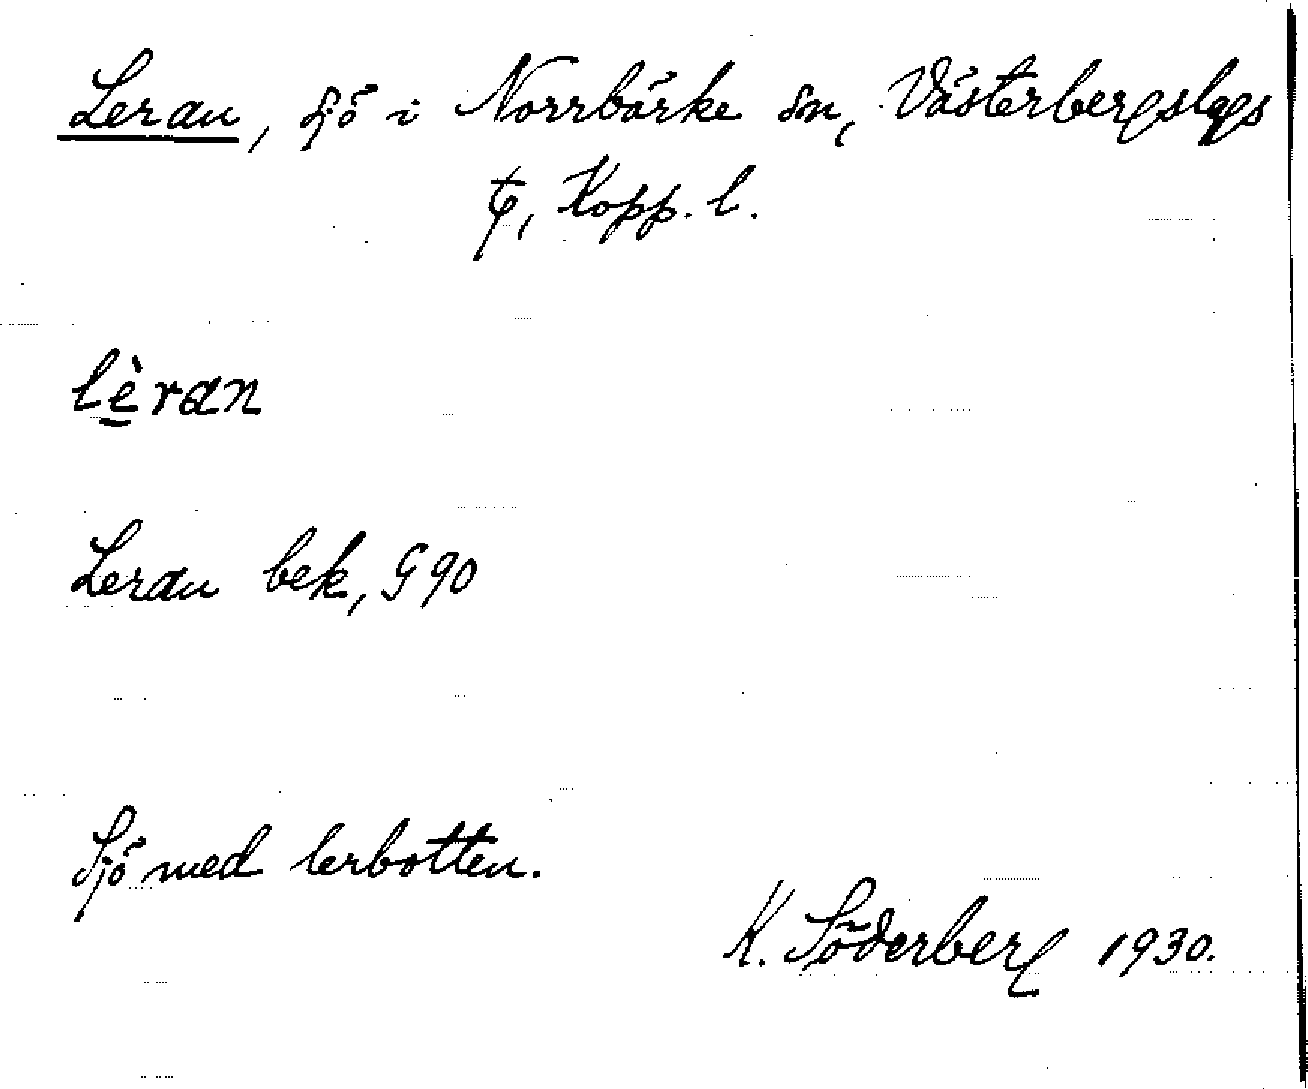 Leran, sjö i Norrbärke sn, Västerbergslags
tg, Kopp. l.
lèran
Leran bek, G 90
Sjö med lerbotten.
K. Söderberg 1930.